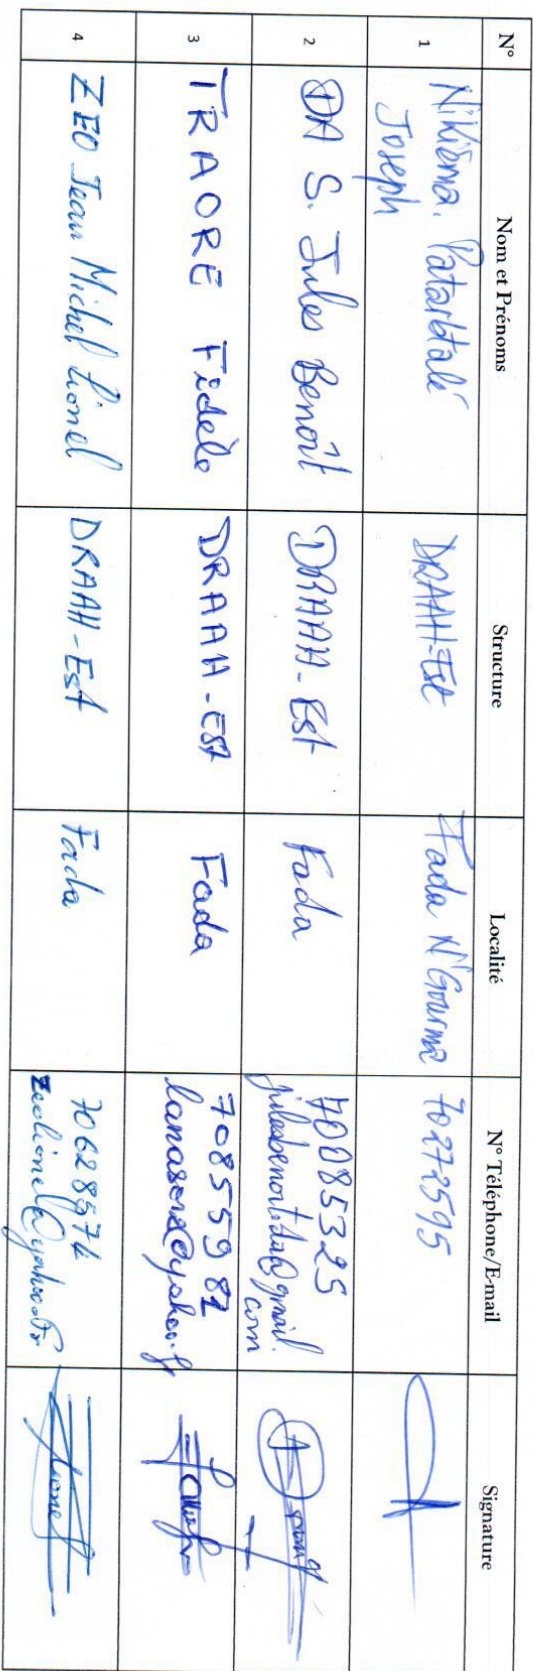 N° Nom et Prénoms Structure Localité N° Téléphone/E-mail Signature
1 Nikiéma. Patarbtalé Joseph DRAAH-Est Fada N'Gourma 70272595
2 DA S. Jules Benoît DRAAH-Est Fada 70085325 julesbenoit.da@gmail.com
3 TRAORE Fidèle DRAAH-Est Fada 70855982
4 ZEO Jean Michel Lionel DRAAH-Est Fada 70628574 zeolionel@yahoo.fr